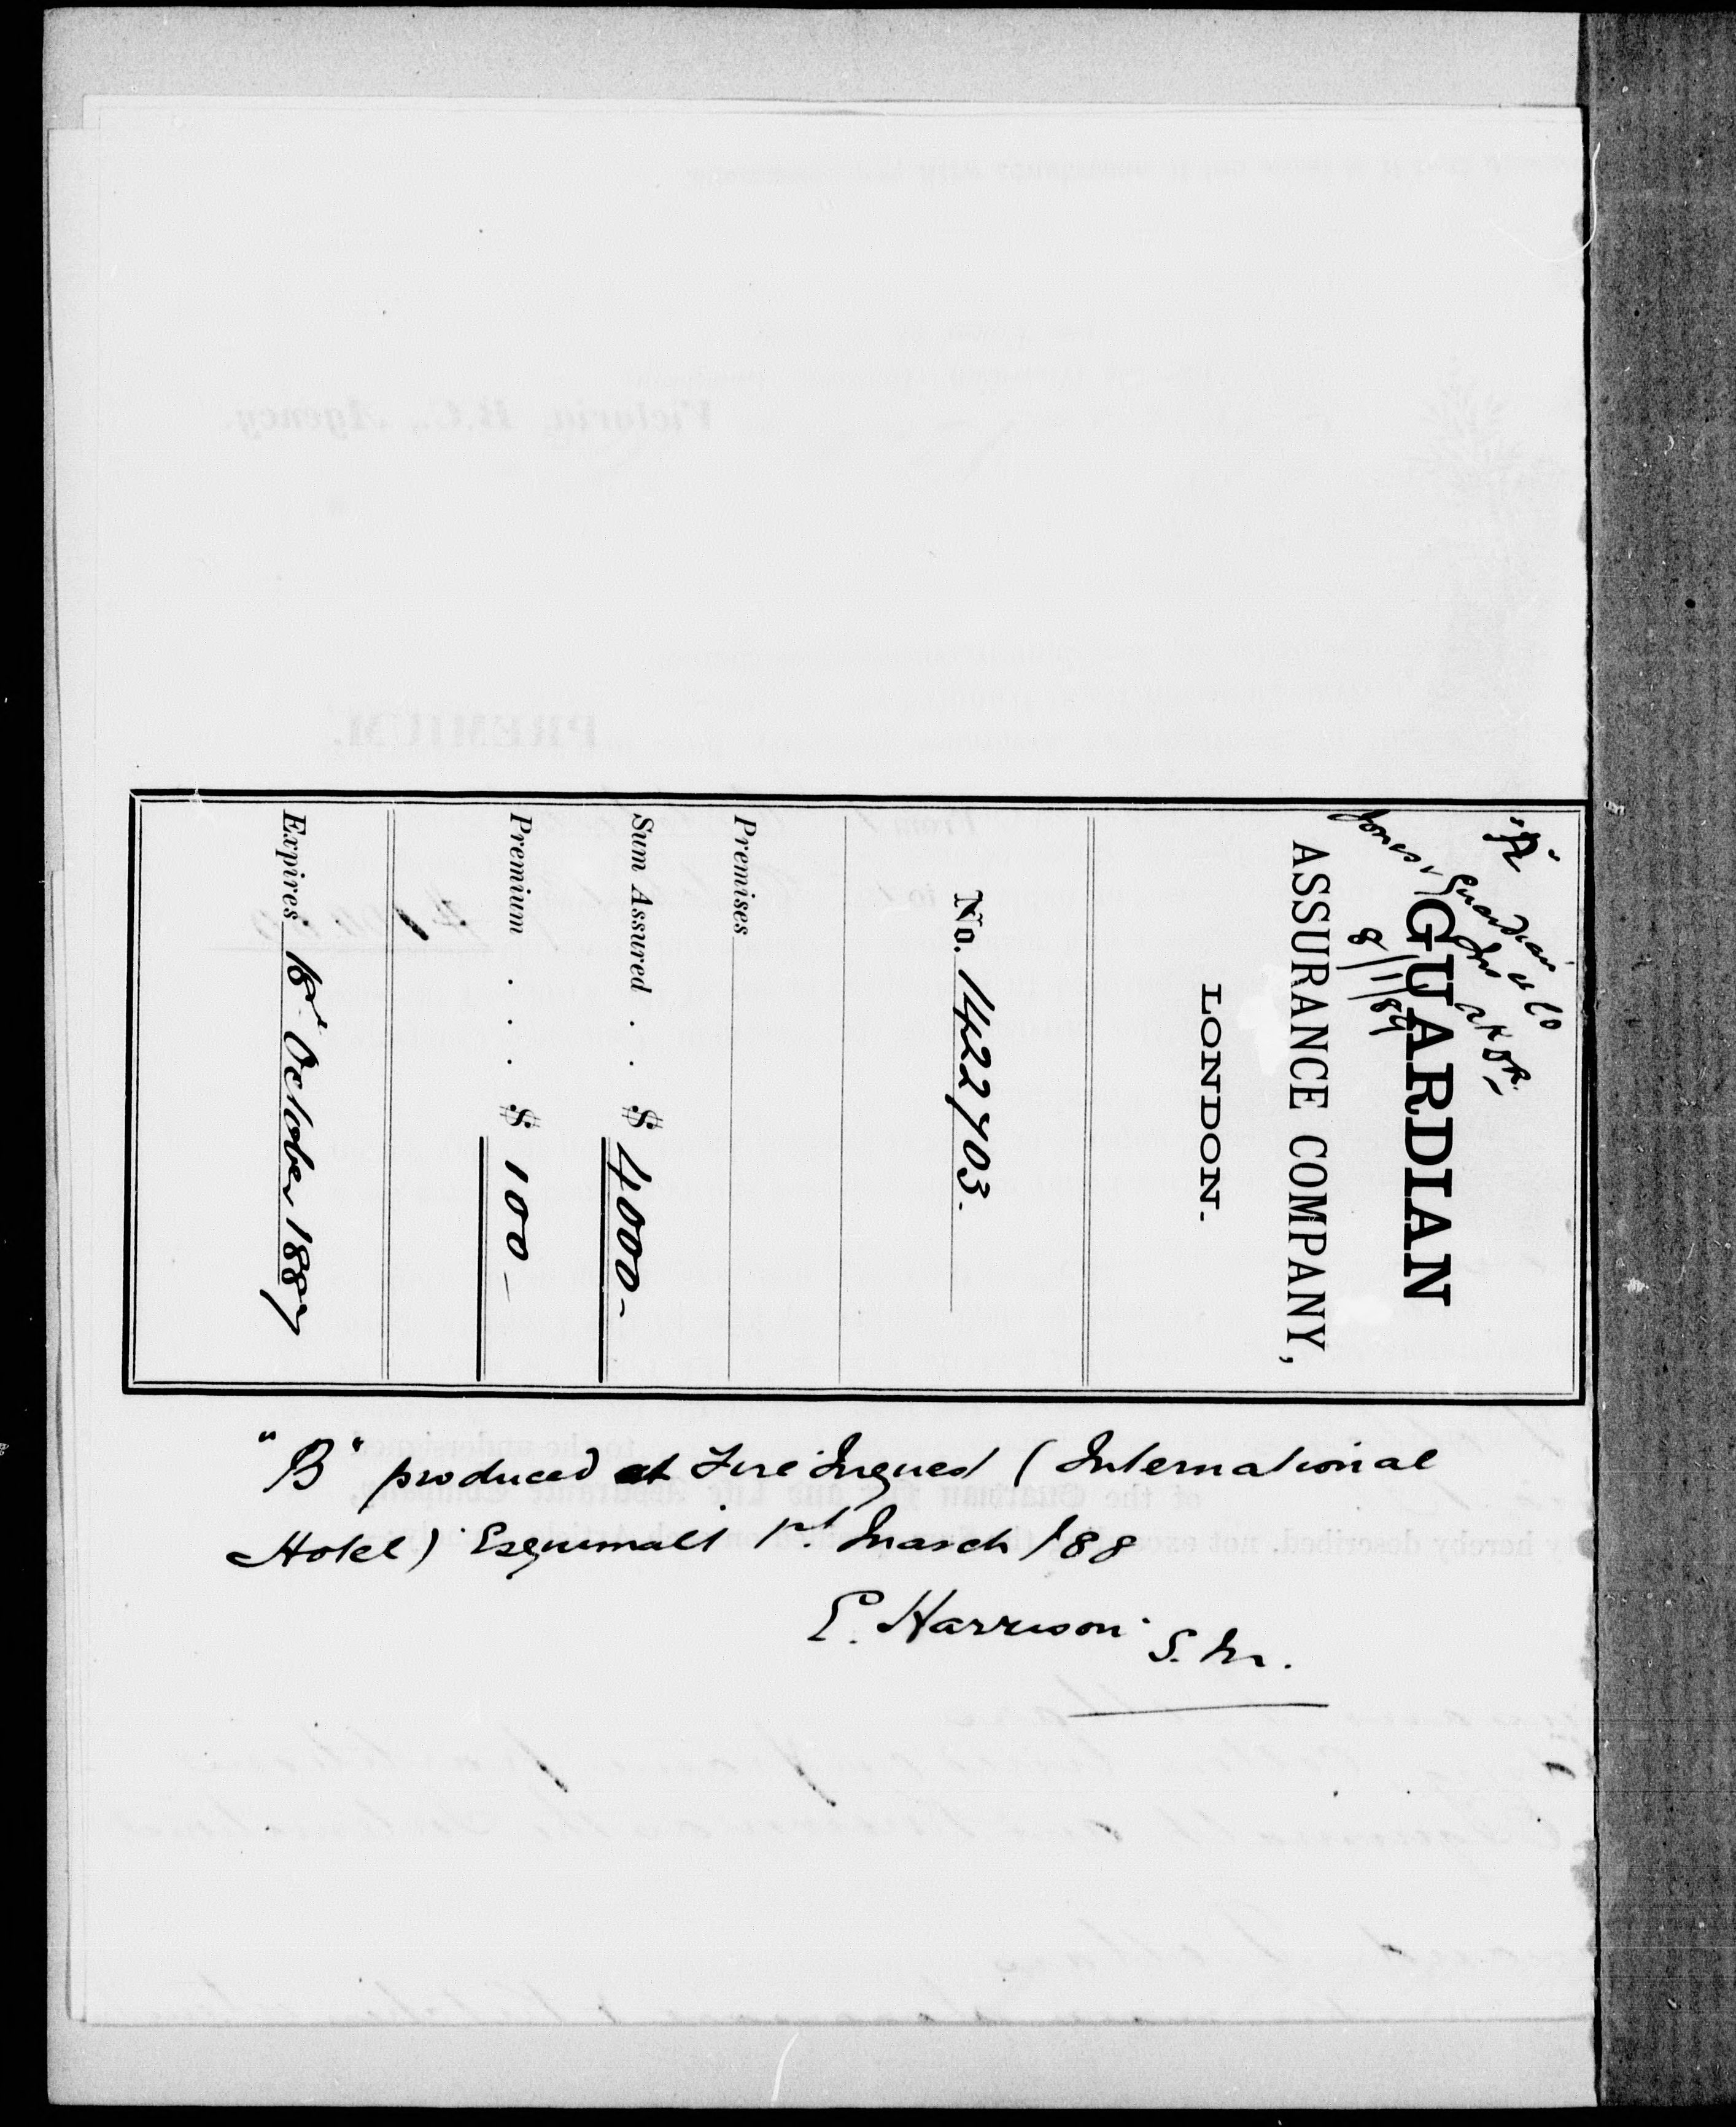 "A"
Jones v Guardian
8/1/89
GUARDIAN
ASSURANCE COMPANY,
LONDON.
No. 1422703.
Premises
Sum Assured . . $ 4000-
Premium . . . $ 100-
Expires October 1887
"B" produced at Fire Inquest (International
Hotel) Esquimalt 1st. March /88
E. Harrison S.M.
Victoria, B.C., Agency.
PREMIUM.